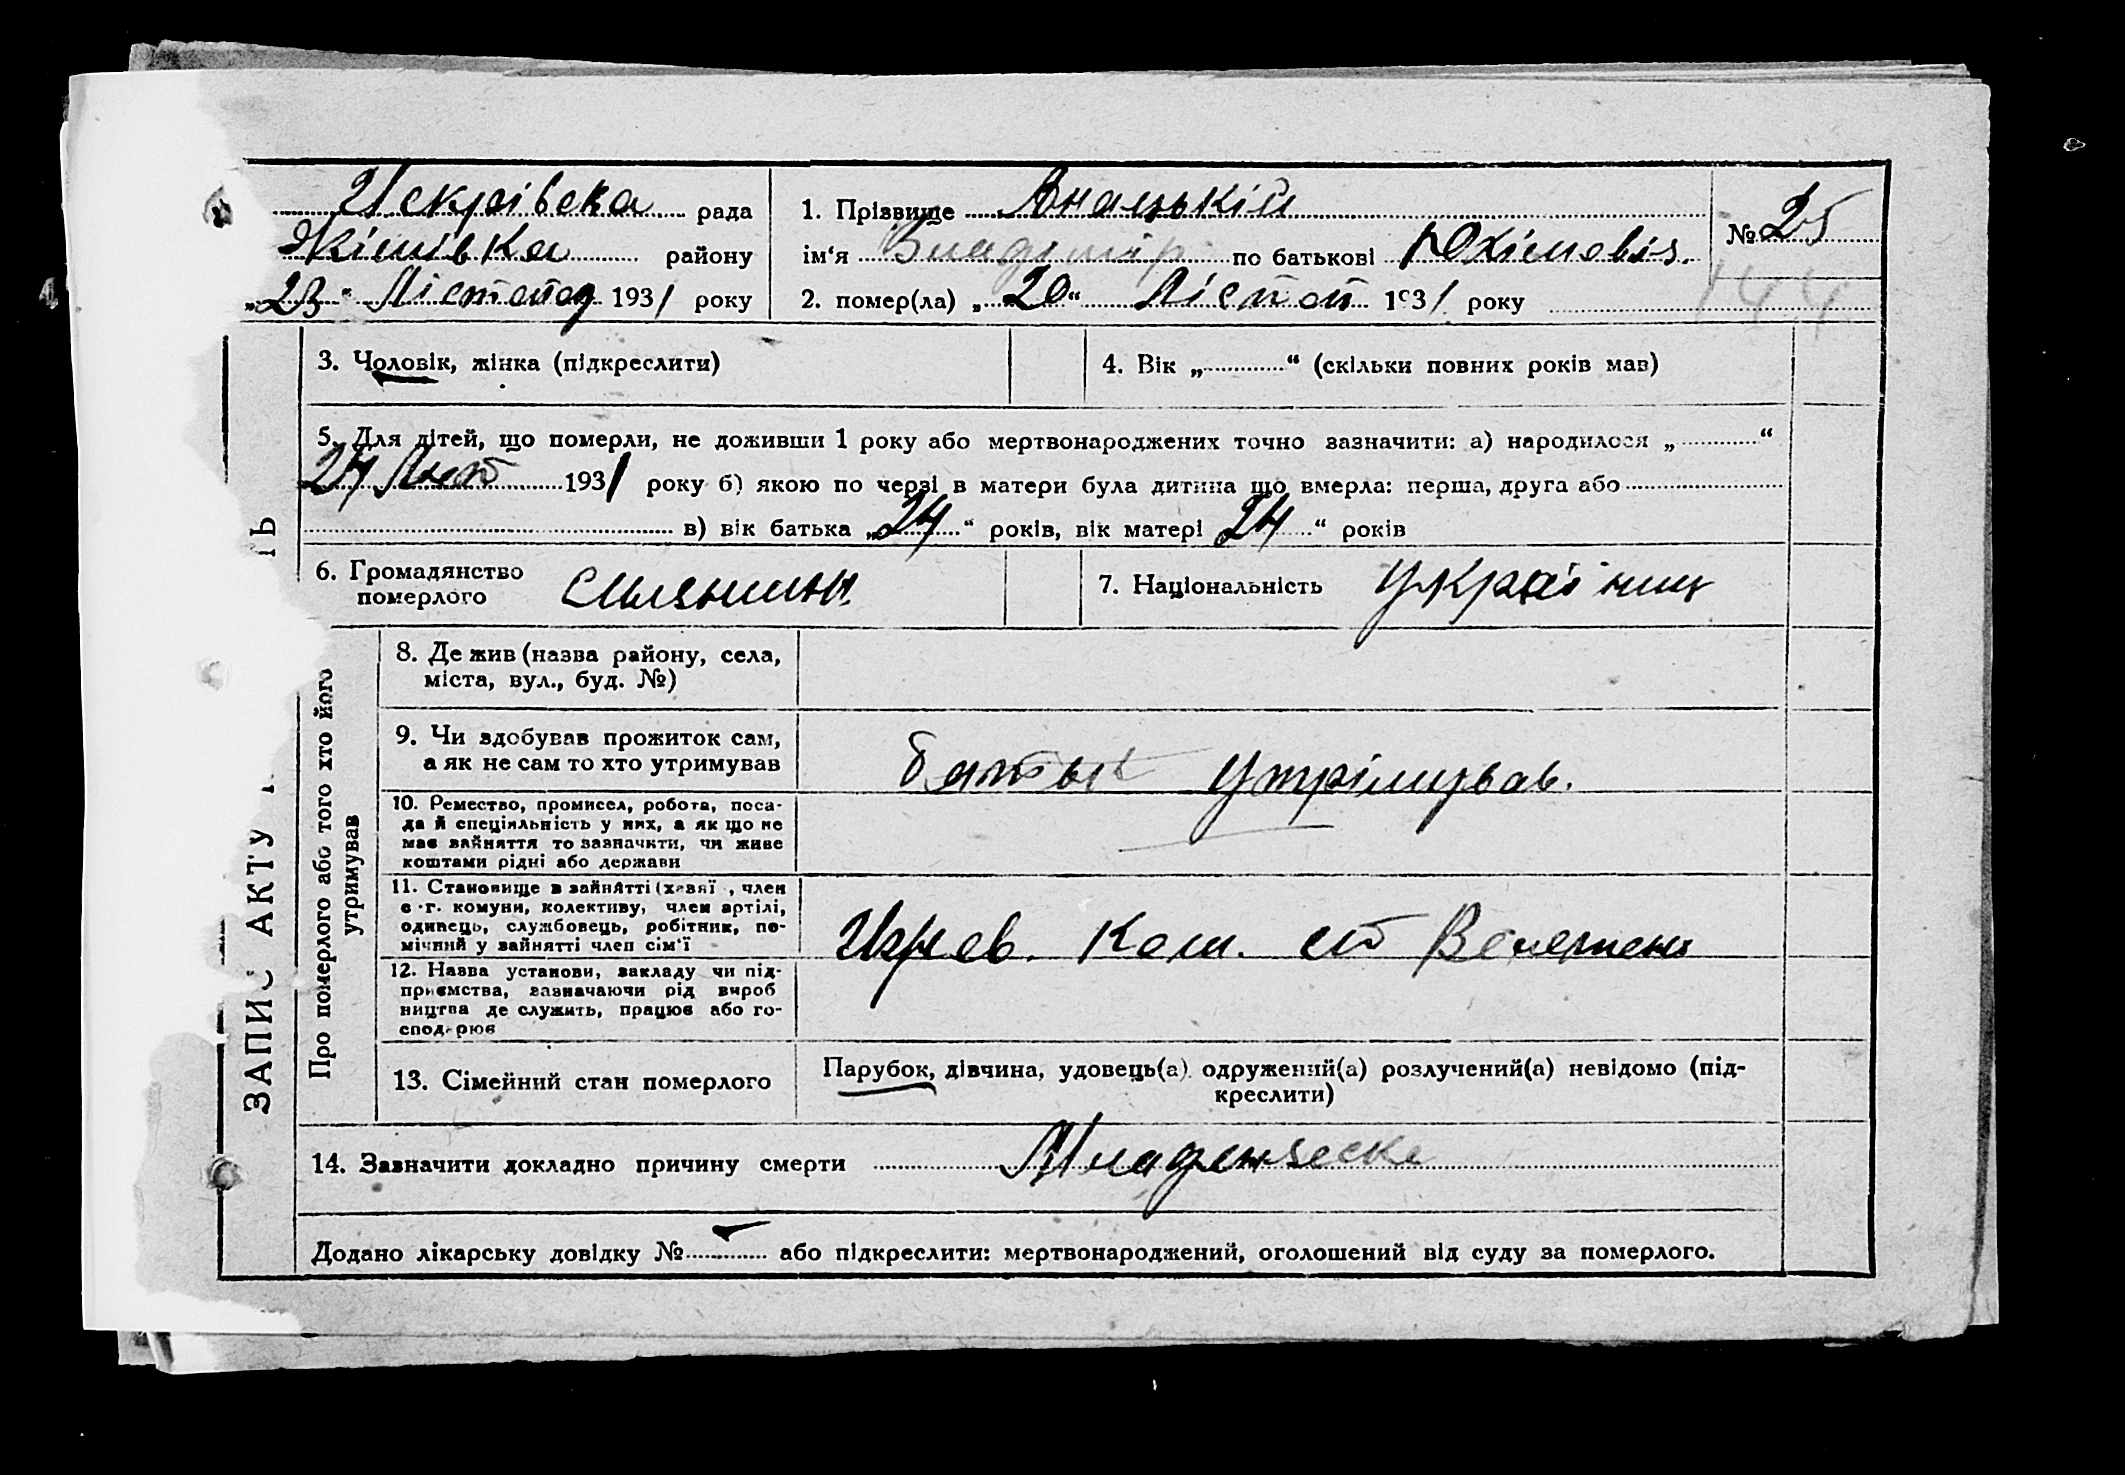 Искрівска рада
Якімівка району
„23“ Лістопад 1931 року
1. Прізвище Внацькій
ім'я Владімір по батькові Юхімовіч.
2. помер(ла) „20“ Лістоп 1931 року
№ 25
144
3. Чоловік, жінка (підкреслити)
4. Вік „ “ (скільки повних років мав)
5. Для дітей, що померли, не доживши 1 року або мертвонароджених точно зазначити: а) народилося „ “
24 1931 року б) якою по черзі в матери була дитина що вмерла: перша, друга або
в) вік батька „24“ років, вік матері 24“ років
6. Громадянство
померлого
7. Національність Українц
ЗАПИС АКТУ
Про померлого або того хто його
утримував
8. Де жив (назва району, села,
міста, вул., буд. №)
9. Чи здобував прожиток сам,
а як не сам то хто утримував
батьк утрімував.
10. Ремество, промисел, робота, поса-
да й спеціяльність у них, а як що не
має зайняття то зазначити, чи живе
коштами рідні або держави
11. Становище в зайнятті (хазяї , член
с.-г. комуни, колективу, член артілі,
одинець, службовець, робітник, по-
мічний у зайнятті член сім'ї
12. Назва установи, закладу чи під-
приємства, зазначаючи рід вироб
ництва де служить, працює або го-
сподарює
13. Сімейний стан померлого
Парубок, дівчина, удовець(а) одружений(а) розлучений(а) невідомо (під-
креслити)
14. Зазначити докладно причину смерти Младенческе
Додано лікарську довідку № або підкреслити: мертвонароджений, оголошений від суду за померлого.